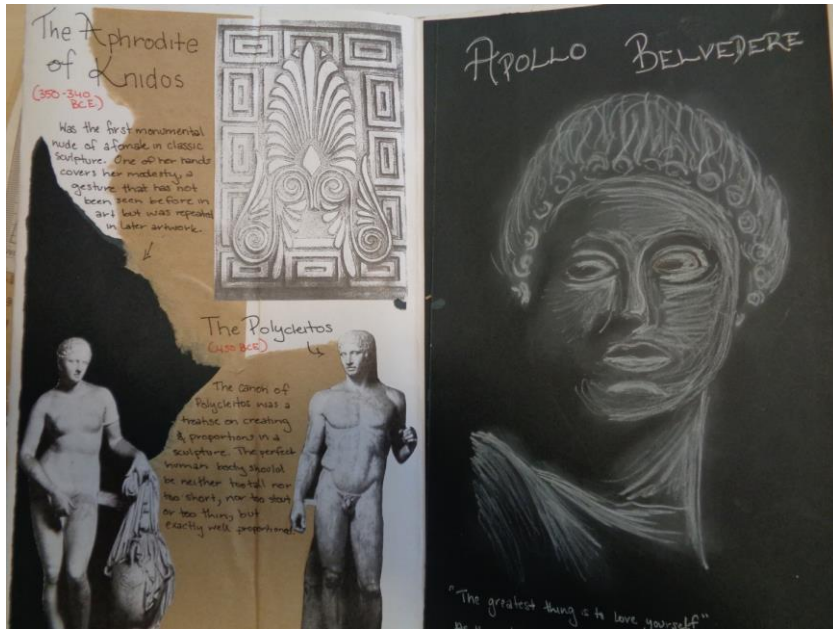 The Aphrodite
of Knidos
(350-340
BCE)
Was the first monumental
nude of a female in classic
sculpture. One of her hands
covers her modesty, a
gesture that has not
been seen before in
art but was repeated
in later artwork.
The Polycleitos
(450 BCE)
The canon of
Polycleitos was a
treatise on creating
& proportions in a
sculpture. The perfect
human body should
be neither too tall nor
too short, nor too stout
or too thin, but
exactly well proportioned.
APOLLO BELVEDERE
"The greatest thing is to love yourself"